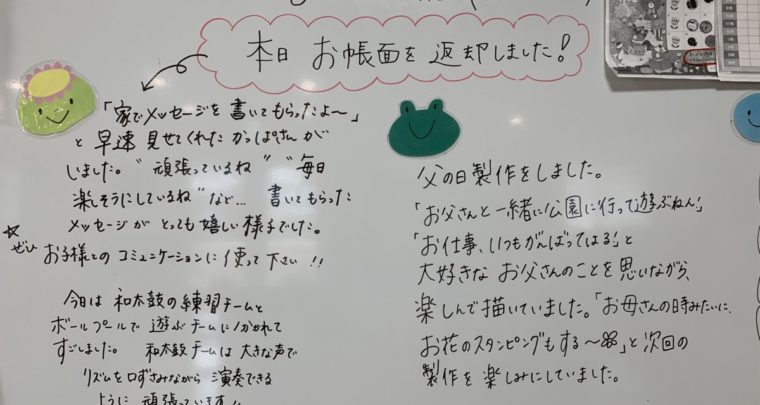 本日 お帳面を 返却しました!
「家でメッセージを 書いてもらったよ〜」
と 早速 見せてくれた かっぱさん が
いました。"頑張っているね" "毎日
楽しそうにしているね"など… 書いてもらった
メッセージが とっても 嬉しい 様子でした。
☆ ぜひ お子様との コミュニケーションに 使って 下さい!!
今日は 和太鼓の 練習チームと
ボールプールで 遊ぶチームに分かれて
すごしました。 和太鼓チームは 大きな声で
リズムを口ずさみながら 演奏できる
ように 頑張っています!!
父の日製作をしました。
「お父さんと一緒に公園に行って遊ぶねん!」
「お仕事、いつもがんばってはる!」と
大好きな お父さんのことを 思いながら、
楽しんで描いていました。「お母さんの時みたいに、
お花のスタンピングもする〜」と次回の
製作を 楽しみにしていました。